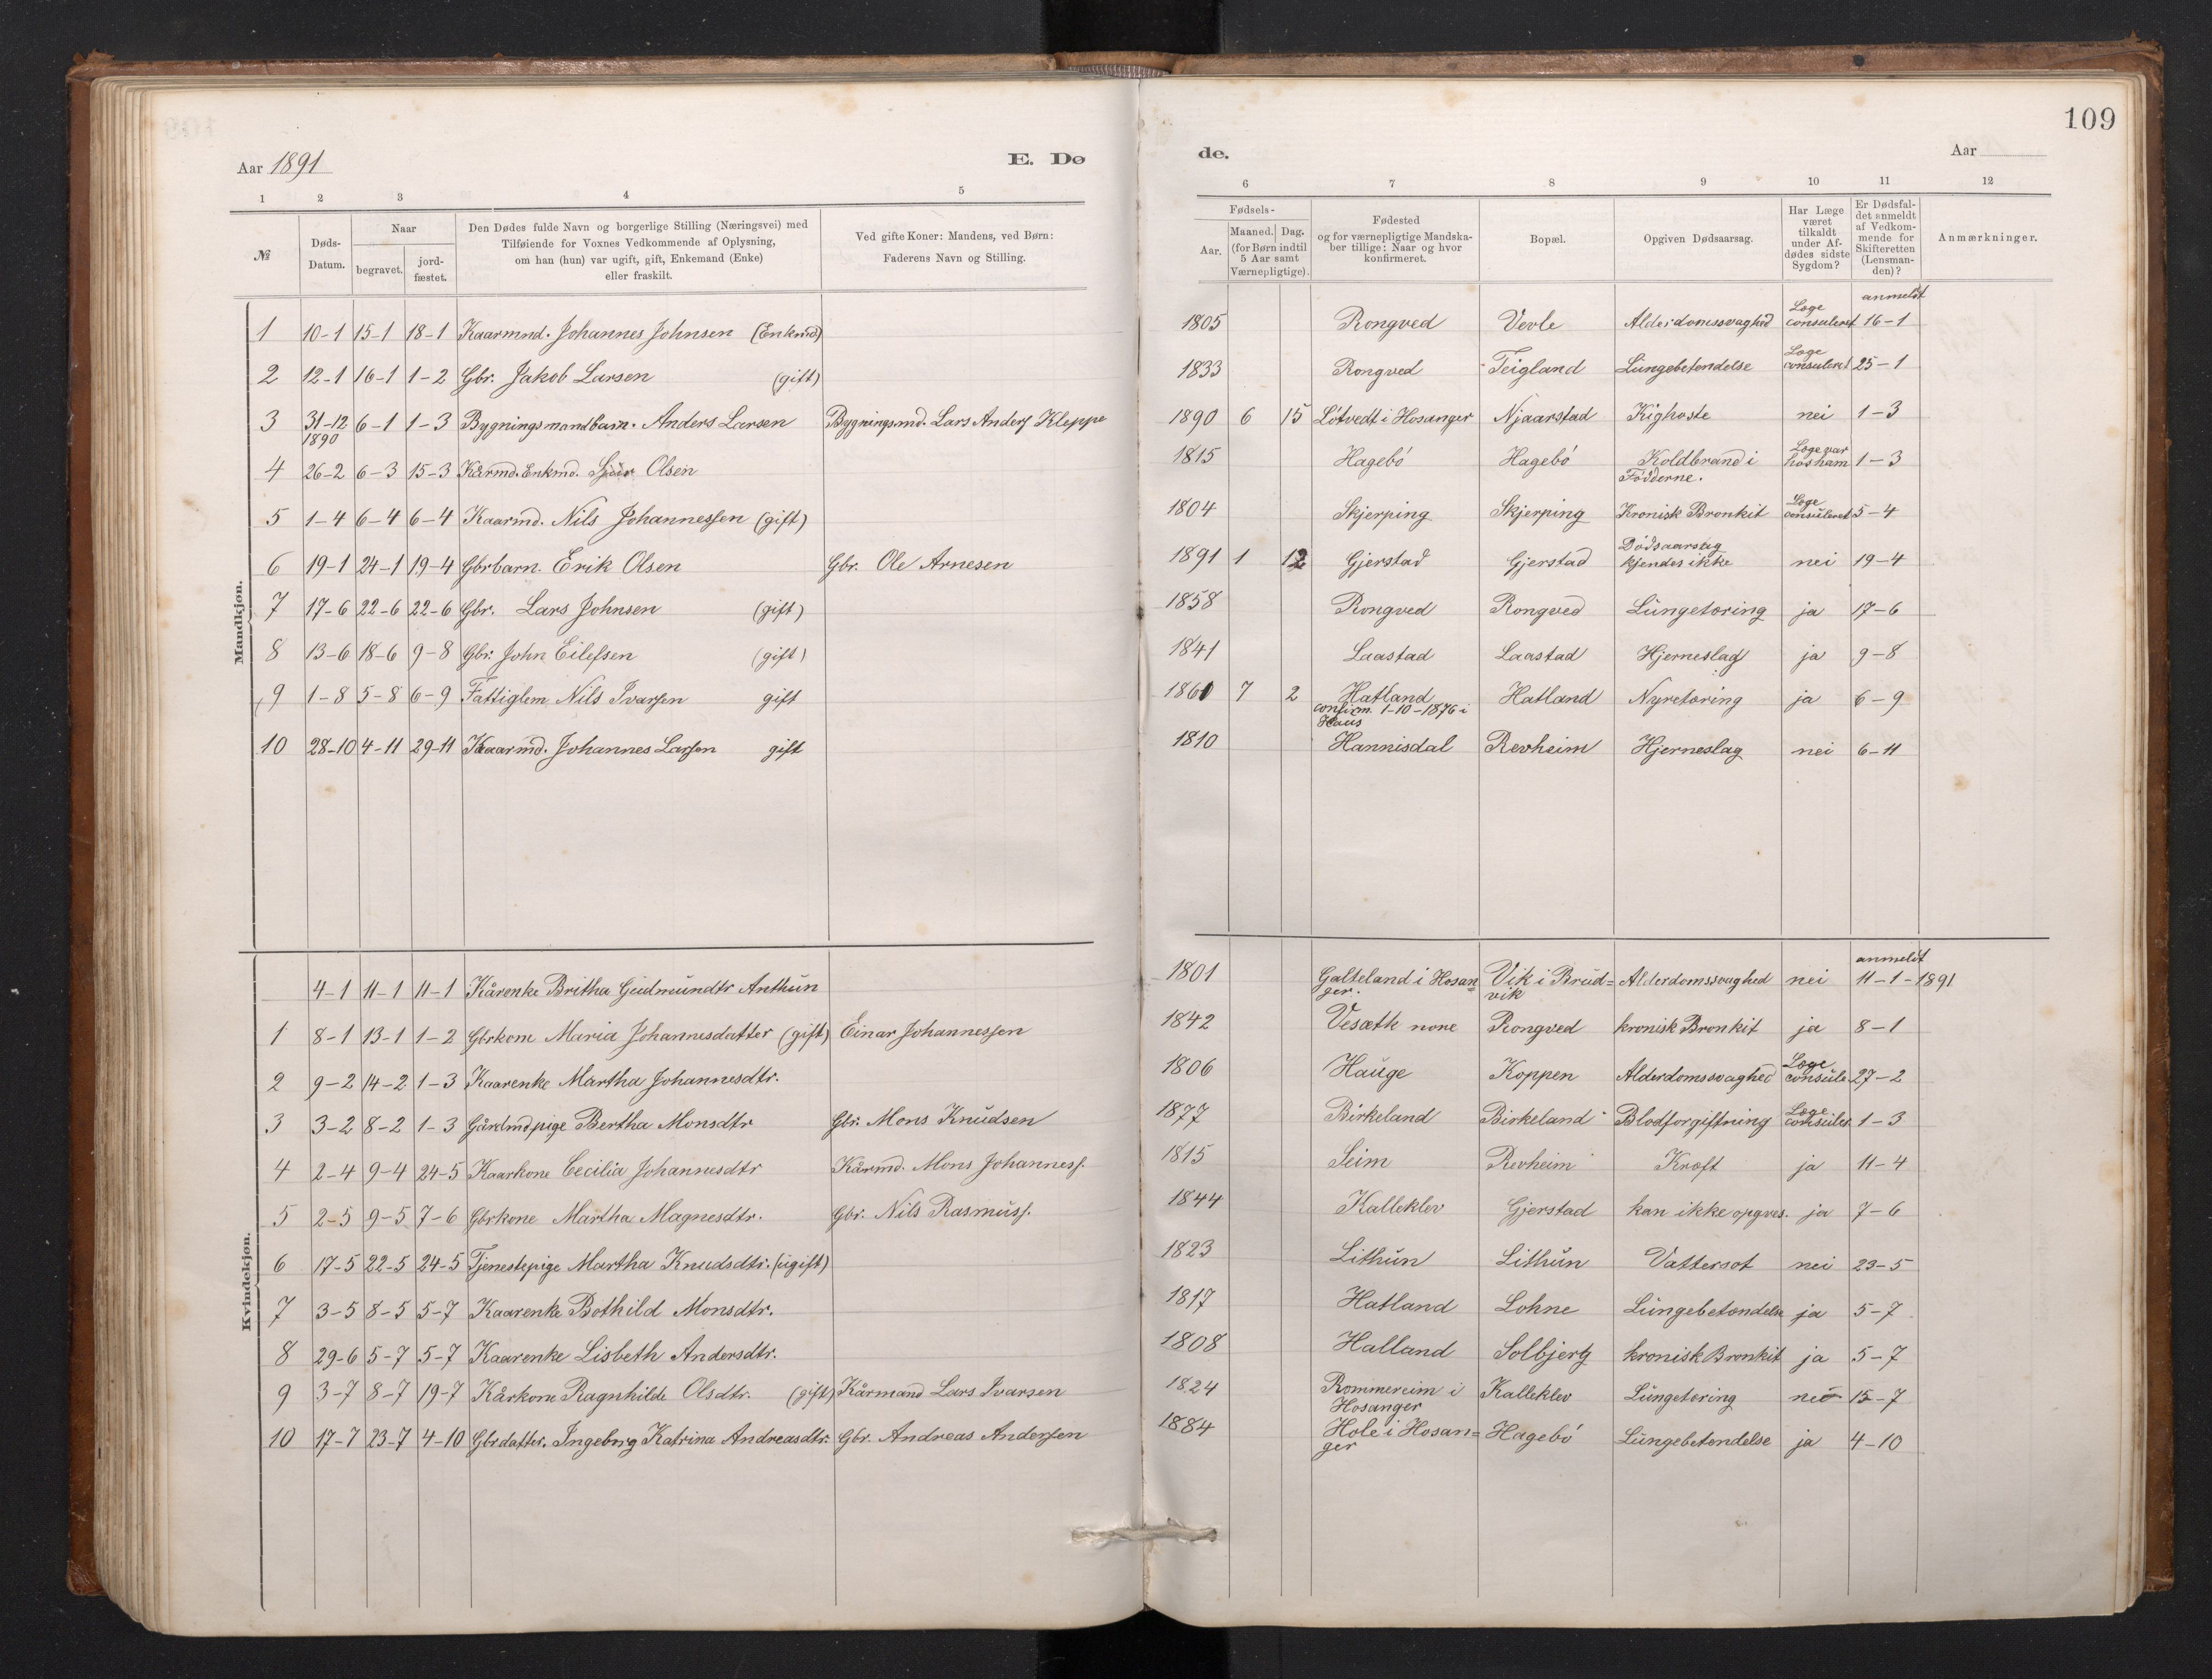 109
Aar 1891
E. Dø
de.
Aar
1 2 3 4 5 6 7 8 9 10 11 12
№
Døds-
Datum.
Naar
begravet.
jord-
fæstet.
Den Dødes fulde Navn og borgerlige Stilling (Næringsvei) med
Tilføiende for Voxnes Vedkommende af Oplysning,
om han (hun) var ugift, gift, Enkemand (Enke)
eller fraskilt.
Ved gifte Koner: Mandens, ved Børn:
Faderens Navn og Stilling.
Fødsels-
Aar.
Maaned. Dag.
(for Børn indtil
5 Aar samt
Værnepligtige).
Fødested
og for værnepligtige Mandska-
ber tillige: Naar og hvor
konfirmeret.
Bopæl.
Opgiven Dødsaarsag.
Har Læge
været
tilkaldt
under Af-
dødes sidste
Sygdom?
Er Dødsfal-
det anmeldt
af Vedkom-
mende for
Skifteretten
(Lensman-
den)?
Anmærkninger.
Mandkjøn.
1 10-1 15-1 18-1 Kaarmnd. Johannes Johnsen (Enkmd) 1805 Rongved Vevle Alderdomssvaghed Læge consuleret anmeldt 16-1
2 12-1 16-1 1-2 Gbr. Jakob Larsen (gift) 1833 Rongved Teigland Lungebetendelse Læge consuleret 25-1
3 31-12 1890 6-1 1-3 Bygningsmandbarn. Anders Larsen Bygningsmd. Lars Anders Kleppe 1890 6 15 Løtvedt i Hosanger Njaarstad Kighoste nei 1-3
4 26-2 6-3 15-3 Kårmd. Enkmd. Sjur Olsen 1815 Hagebø Hagebø Koldbrand i Fødderne. Læge var hos ham 1-3
5 1-4 6-4 6-4 Kaarmd. Nils Johannessen (gift) 1804 Skjerping Skjerping Kronisk Bronkit Læge consuleret 5-4
6 19-1 24-1 19-4 Gbrbarn. Erik Olsen Gbr. Ole Arnesen 1891 1 12 Gjerstad Gjerstad Dødsaarsag kjendes ikke nei 19-4
7 17-6 22-6 22-6 Gbr. Lars Johnsen (gift) 1858 Rongved Rongved Lungetæring ja 17-6
8 13-6 18-6 9-8 Gbr. John Eilefsen (gift) 1841 Laastad Laastad Hjerneslag ja 9-8
9 1-8 5-8 6-9 Fattiglem Nils Ivarsen gift 1861 7 2 Hatland confirm. 1-10-1876 i Haus Hatland Nyretæring ja 6-9
10 28-10 4-11 29-11 Kaarmd. Johannes Larsen gift 1810 Hannisdal Revheim Hjerneslag nei 6-11
Kvindekjøn.
4-1 11-1 11-1 Kårenke Britha Gudmundtr Anthun 1801 Galteland i Hosanger. Vik i Brudvik Alderdomssvaghed nei anmeldt 11-1-1891
1 8-1 13-1 1-2 Gbrkone Maria Johannesdatter (gift) Einar Johannessen 1842 Vesæth nore Rongved kronisk Bronkit ja 8-1
2 9-2 14-2 1-3 Kaarenke Martha Johannesdtr. 1806 Hauge Koppen Alderdomssvaghed Læge consule 27-2
3 3-2 8-2 1-3 Gårdmdpige Bertha Monsdtr Gbr. Mons Knudsen 1877 Birkeland Birkeland Blodforgiftning Læge consuler 1-3
4 2-4 9-4 24-5 Kaarkone Cecilia Johannesdtr Kårmd. Mons Johanness. 1815 Seim Revheim Kræft ja 11-4
5 2-5 9-5 7-6 Gbrkone Martha Magnesdtr. Gbr. Nils Rasmuss. 1844 Kalleklev Gjerstad kan ikke opgves. ja 7-6
6 17-5 22-5 24-5 Tjenestepige Martha Knudsdtr. (ugift) 1823 Lithun Lithun Vattersot nei 23-5
7 3-5 8-5 5-7 Kaarenke Bothild Monsdtr. 1817 Hatland Lohne Lungebetændelse ja 5-7
8 29-6 5-7 5-7 Kaarenke Lisbeth Andersdtr. 1808 Halland Solbjerg kronisk Bronkit ja 5-7
9 3-7 8-7 19-7 Kårkone Ragnhilde Olsdtr. (gift) Kårmand Lars Ivarsen 1824 Rommereim i Hosanger Kalleklev Lungetæring nei 15-7
10 17-7 23-7 4-10 Gbrdatter. Ingebrg Katrina Andreasdtr. Gbr. Andreas Andersen 1884 Hole i Hosanger Hagebø Lungebetendelse ja 4-10